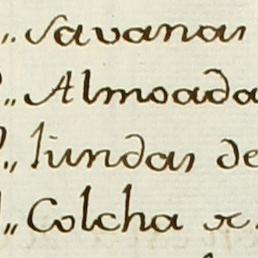 „ Savanas
„ Almoada
„ fundas de
„ Colcha